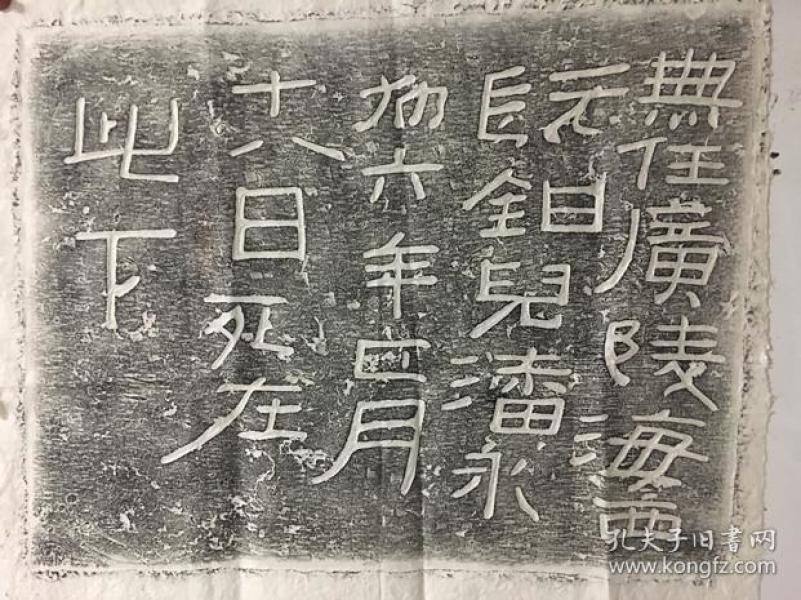 無任廣陵海西
潘永
初六年月
十八日死在
此下
孔夫子旧書网
www.kongfz.com